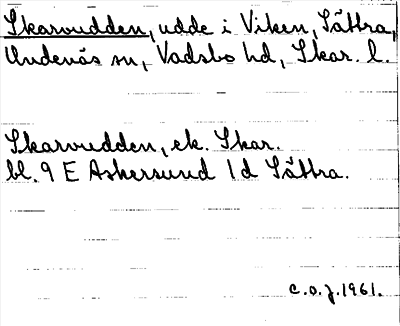 Skarvudden, udde i Viken, Sättra,
Undenäs sn, Vadsbo hd, Skar. l.
Skarvudden, ek. Skar.
bl. 9 E Askersund 1d Sättra.
C.O.J. 1961.